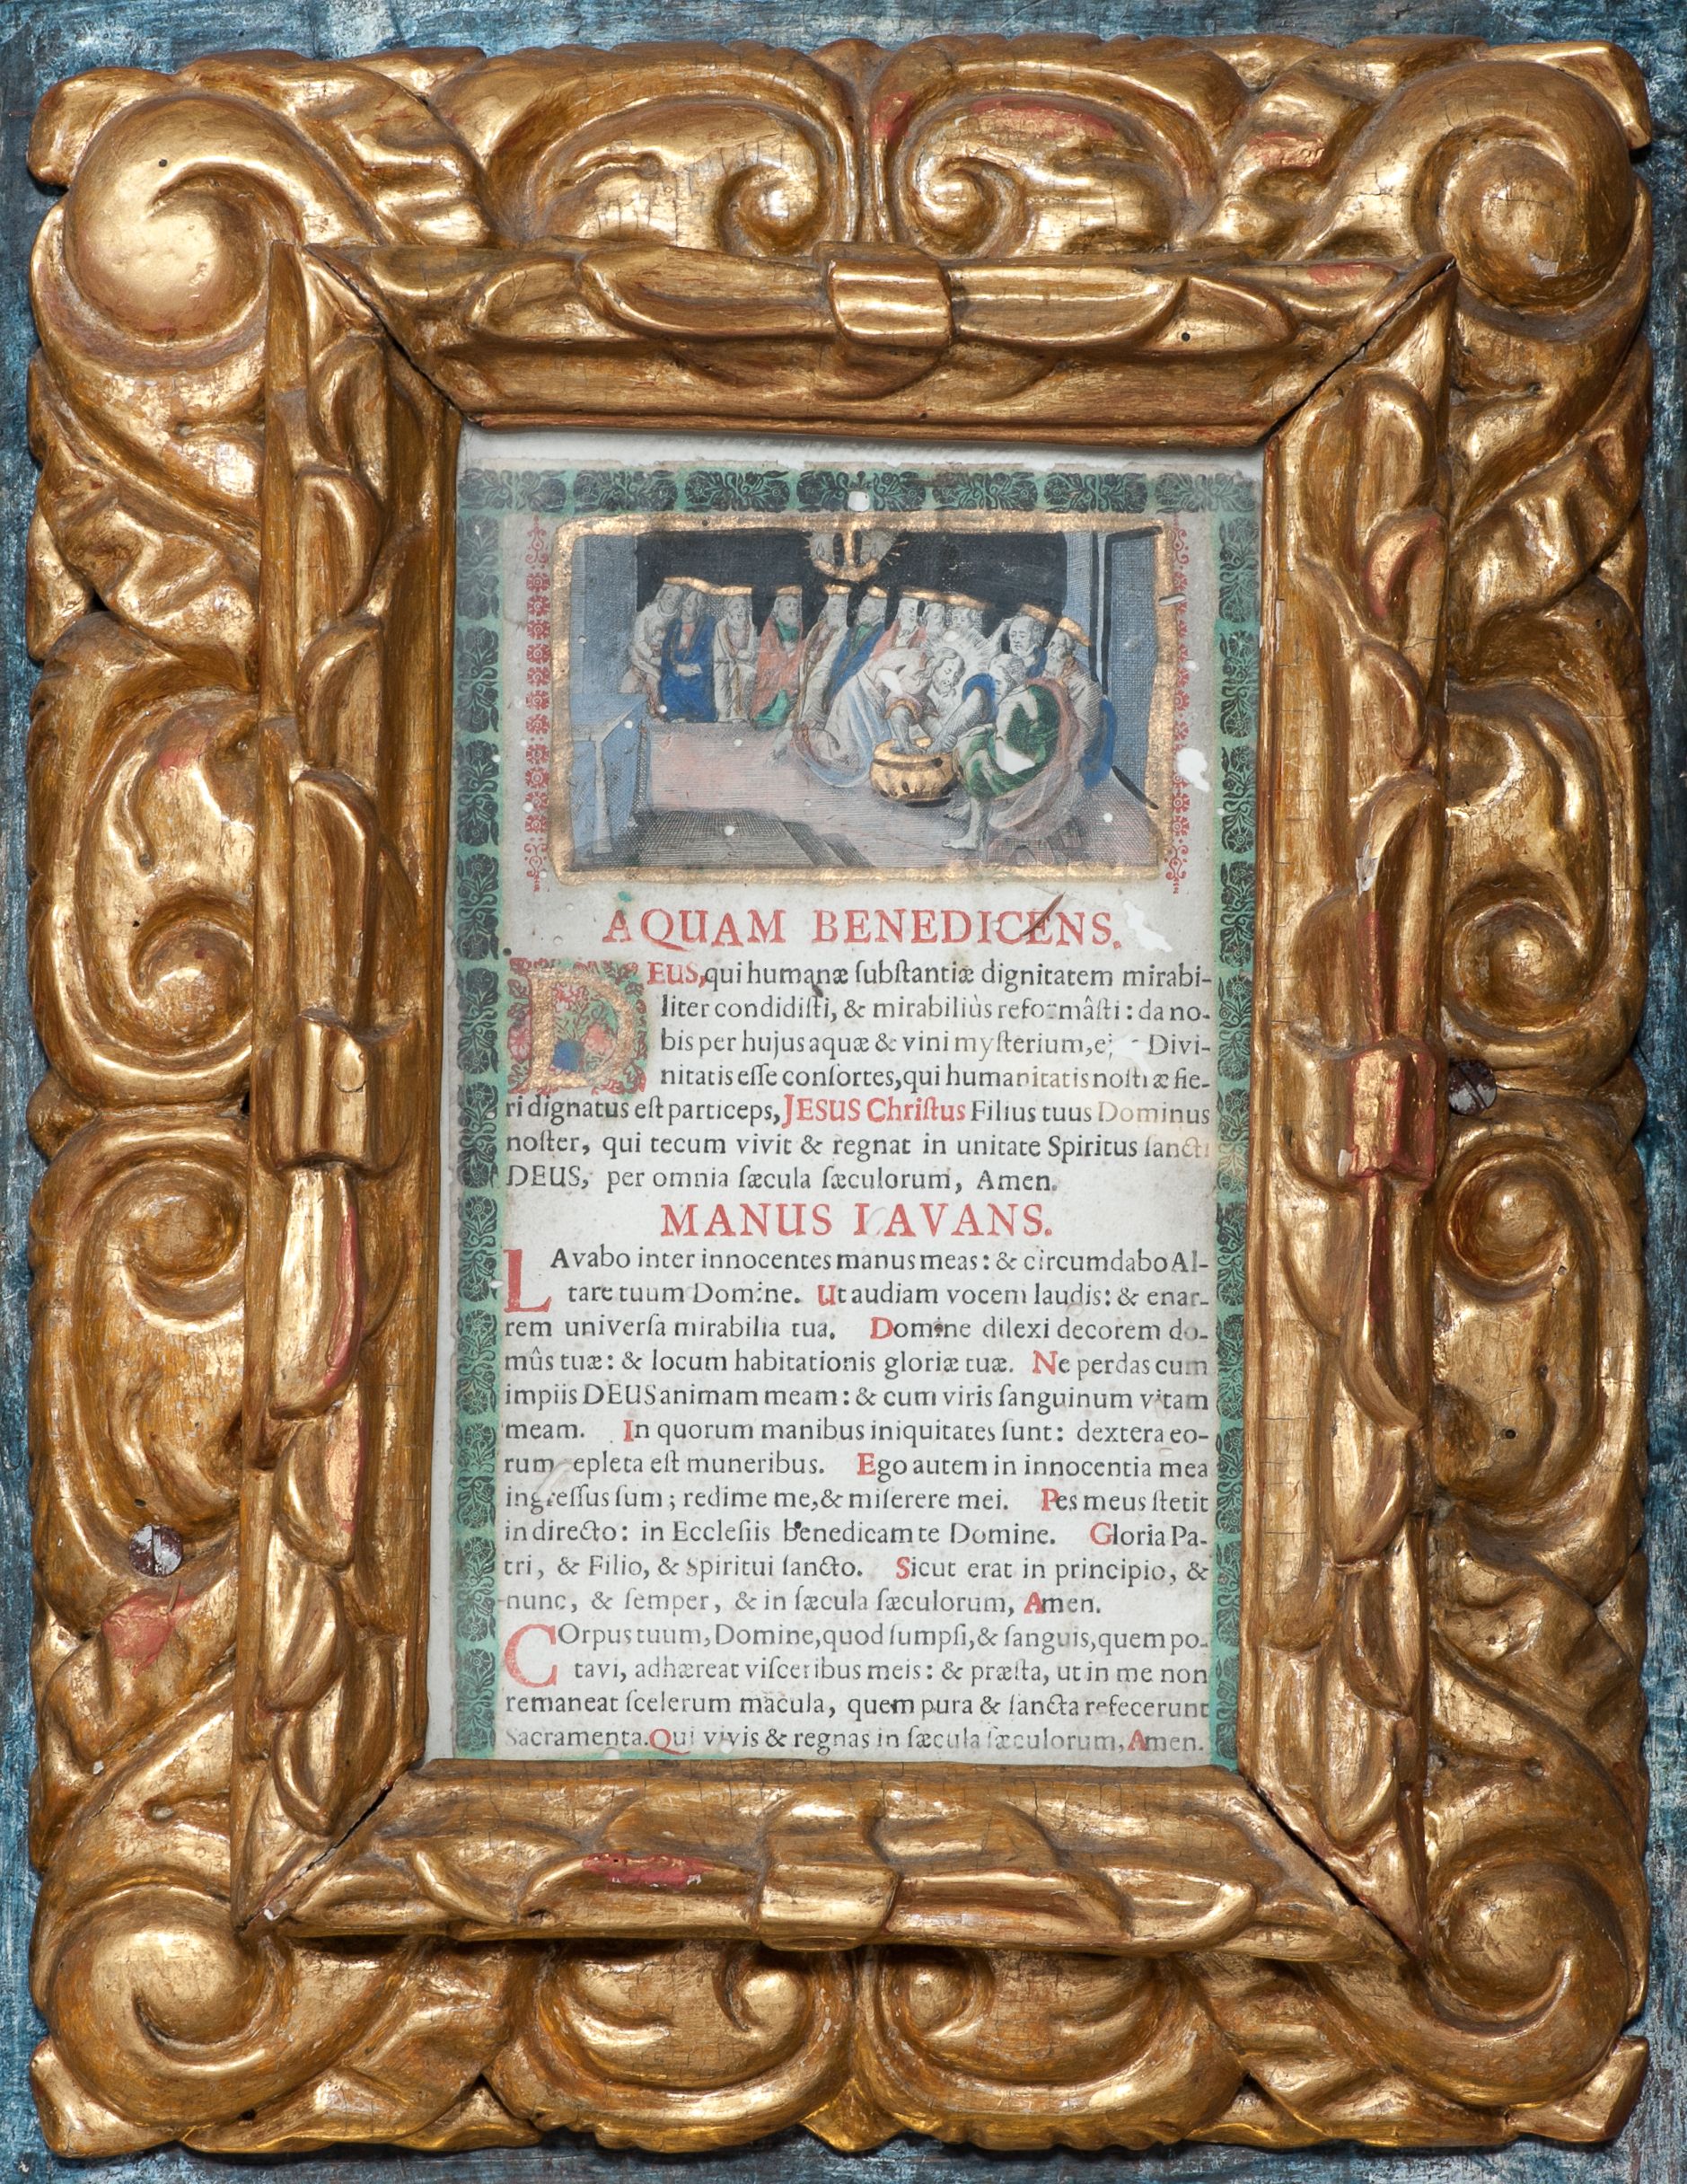 AQUAM BENEDICENS.
DEUS, qui humanæ ſubſtantiæ dignitatem mirabi-
liter condidiſti, & mirabiliùs reformâſti: da no-
bis per hujus aquæ & vini myſterium, Divi-
nitatis eſſe conſortes, qui humanitatis noſtræ fie-
ri dignatus eſt particeps, JESUS Chriſtus Filius tuus Dominus
noſter, qui tecum vivit & regnat in unitate Spiritus ſancti
DEUS, per omnia ſæcula ſæculorum, Amen.
MANUS LAVANS.
LAvabo inter innocentes manus meas: & circumdabo Al-
tare tuum Domine. Ut audiam vocem laudis: & enar-
rem univerſa mirabilia tua. Domine dilexi decorem do-
mûs tuæ: & locum habitationis gloriæ tuæ. Ne perdas cum
impiis DEUS animam meam: & cum viris ſanguinum vitam
meam. In quorum manibus iniquitates ſunt: dextera eo-
rum repleta eſt muneribus. Ego autem in innocentia mea
ingreſſus ſum; redime me, & miſerere mei. Pes meus ſtetit
in directo: in Eccleſiis benedicam te Domine. Gloria Pa-
tri, & Filio, & Spiritui ſancto. Sicut erat in principio, &
nunc, & ſemper, & in ſæcula ſæculorum, Amen.
COrpus tuum, Domine, quod ſumpſi, & ſanguis, quem po-
tavi, adhæreat viſceribus meis: & præſta, ut in me non
remaneat ſcelerum macula, quem pura & ſancta refecerunt
Sacramenta. Qui vivis & regnas in ſæcula ſæculorum, Amen.